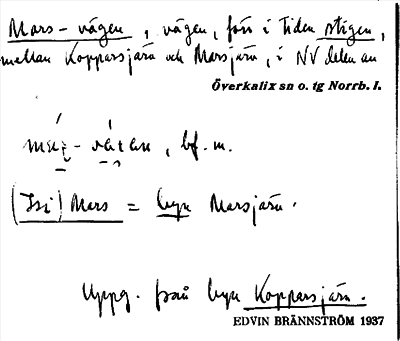 Mars-vägen, vägen, förr i tiden stigen,
mellan Kopparsjärn och Marsjärn, i NV delen av
Överkalix sn o. tg Norrb. l.
bf. m.
(Isi) Mars = byn Marsjärn.
Uppg. från byn Kopparsjärn.
EDVIN BRÄNNSTRÖM 1937